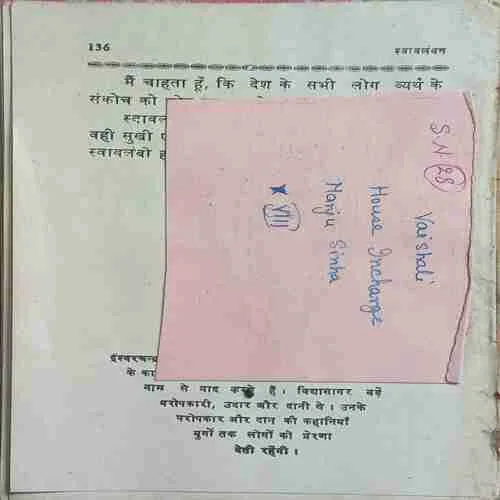 136 स्वावलंबन
मैं चाहता हूँ, कि देश के सभी लोग व्यर्थ के
संकोच को
स्वावल
वही सुखी
स्वावलंबी ह
S.N. 25
Vaishali
House Incharge
Manju Sinha
VIII
ईश्वरचन्द्र
के का
नाम से याद करते हैं। विद्यासागर बड़े
परोपकारी, उदार और दानी थे। उनके
परोपकार और दान की कहानियाँ
युगों तक लोगों को प्रेरणा
देती रहेंगी।